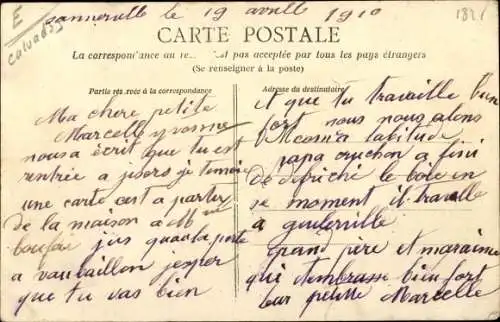 Sannerville le 19 avril 1910
1821
E
Calvados
CARTE POSTALE
La correspondance au re... n'est pas acceptée par tous les pays étrangers
(Se renseigner à la poste)
Partie réservée à la correspondance
Ma chere petite
Marcelle yvonne
nous a écrit que tu est
rentrée a
une carte est a parter
de la maison a Mme
jus qua la porte
a vaubaillon jesper
que tu vas bien
Adresse du destinataire
et que tu travaille bien
fort nous nous alons
Comm a labitude
papa cruchon a fini
de défriché le bois en
se moment il travalle
a
grand père et maraine
qui tembrasse bien fort
leur petitte Marcelle